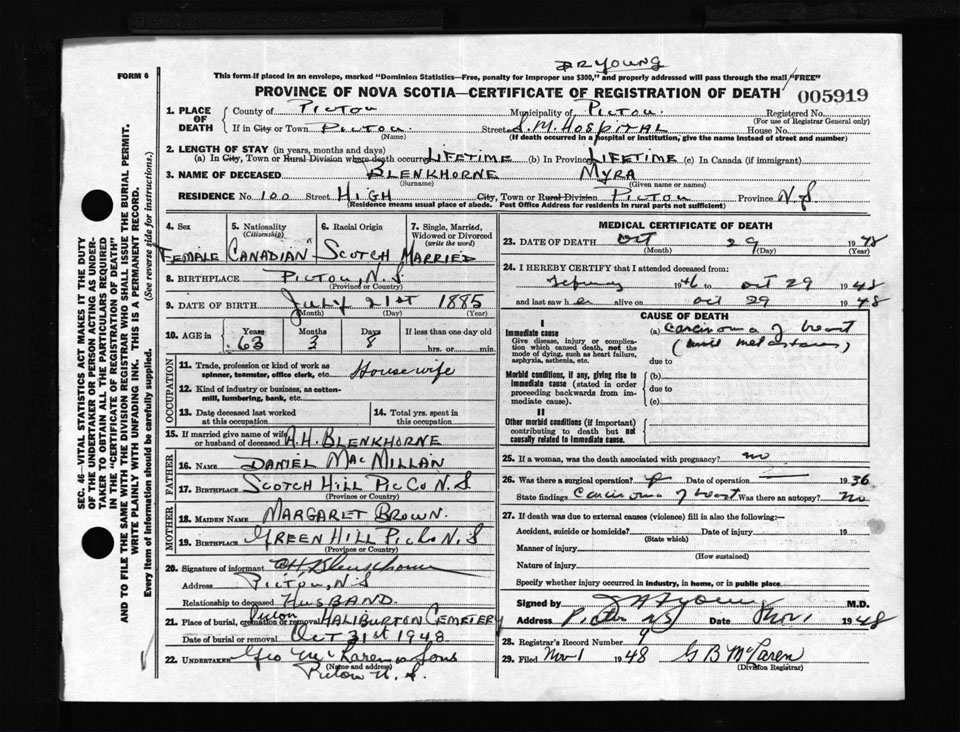 DR YOUNG
FORM 6
This form if placed in an envelope, marked "Dominion Statistics—Free, penalty for improper use $300," and properly addressed will pass through the mail "FREE"
PROVINCE OF NOVA SCOTIA—CERTIFICATE OF REGISTRATION OF DEATH
005919
1. PLACE OF DEATH
County of Pictou Municipality of Pictou Registered No.
(For use of Registrar General only)
If in City or Town Pictou Street S. M. Hospital House No.
(Name) (If death occurred in a hospital or institution, give the name instead of street and number)
2. LENGTH OF STAY (in years, months and days)
(a) In City, Town or Rural Division where death occurred LIFETIME (b) In Province LIFETIME (c) In Canada (if immigrant)
3. NAME OF DECEASED BLENKHORNE MYRA
(Surname) (Given name or names)
RESIDENCE No 100 Street HIGH City, Town or Rural Division PICTOU Province N.S.
(Residence means usual place of abode. Post Office Address for residents in rural parts not sufficient)
4. Sex 5. Nationality (Citizenship) 6. Racial Origin 7. Single, Married, Widowed or Divorced (write the word)
FEMALE CANADIAN SCOTCH MARRIED
8. BIRTHPLACE PICTOU, N.S.
(Province or Country)
9. DATE OF BIRTH JULY 21st 1885
(Month) (Day) (Year)
10. AGE in Years Months Days If less than one day old
63 3 8 hrs. or min.
OCCUPATION
11. Trade, profession or kind of work as spinner, teamster, office clerk, etc. Housewife
12. Kind of industry or business, as cotton-mill, lumbering, bank, etc.
13. Date deceased last worked at this occupation
14. Total yrs. spent in this occupation
15. If married give name of wife or husband of deceased A.H. BLENKHORNE
FATHER
16. NAME DANIEL MACMILLAN
17. BIRTHPLACE SCOTCH HILL PIC CO N.S
(Province or Country)
MOTHER
18. MAIDEN NAME MARGARET BROWN
19. BIRTHPLACE GREEN HILL PIC CO N.S
(Province or Country)
20. Signature of informant AH Blenkhorne
Address PICTOU, N.S
Relationship to deceased HUSBAND
21. Place of burial, cremation or removal Pictou HALIBURTON CEMETERY
Date of burial or removal OCT 31st 1948
22. UNDERTAKER Geo McLaren & Sons
(Name and address)
Pictou N.S.
MEDICAL CERTIFICATE OF DEATH
23. DATE OF DEATH Oct 29 1948
(Month) (Day) (Year)
24. I HEREBY CERTIFY that I attended deceased from:
1946 to Oct 29 1948
and last saw her alive on Oct 29 1948
CAUSE OF DEATH
I
Immediate cause
Give disease, injury or complication which caused death, not the mode of dying, such as heart failure, asphyxia, asthenia, etc.
(a) carcinoma of breast
due to
Morbid conditions, if any, giving rise to immediate cause (stated in order proceeding backwards from immediate cause).
(b)
due to
(c)
II
Other morbid conditions (if important) contributing to death but not causally related to immediate cause.
25. If a woman, was the death associated with pregnancy? no
26. Was there a surgical operation? Date of operation 1936
State findings carcinoma of breast Was there an autopsy? no
27. If death was due to external causes (violence) fill in also the following:—
Accident, suicide or homicide? Date of injury 19
(State which)
Manner of injury
(How sustained)
Nature of injury
Specify whether injury occurred in industry, in home, or in public place
Signed by Young M.D.
Address Pictou NS Date Nov 1 1948
28. Registrar's Record Number
29. Filed Nov 1 1948 G B McLaren
(Division Registrar)
SEC. 46—VITAL STATISTICS ACT MAKES IT THE DUTY
OF THE UNDERTAKER OR PERSON ACTING AS UNDERTAKER
TO OBTAIN ALL THE PARTICULARS REQUIRED
IN THE "CERTIFICATE OF REGISTRATION OF DEATH"
AND TO FILE THE SAME WITH THE DIVISION REGISTRAR WHO SHALL ISSUE THE BURIAL PERMIT.
WRITE PLAINLY WITH UNFADING INK. THIS IS A PERMANENT RECORD.
Every item of information should be carefully supplied. (See reverse side for instructions.)